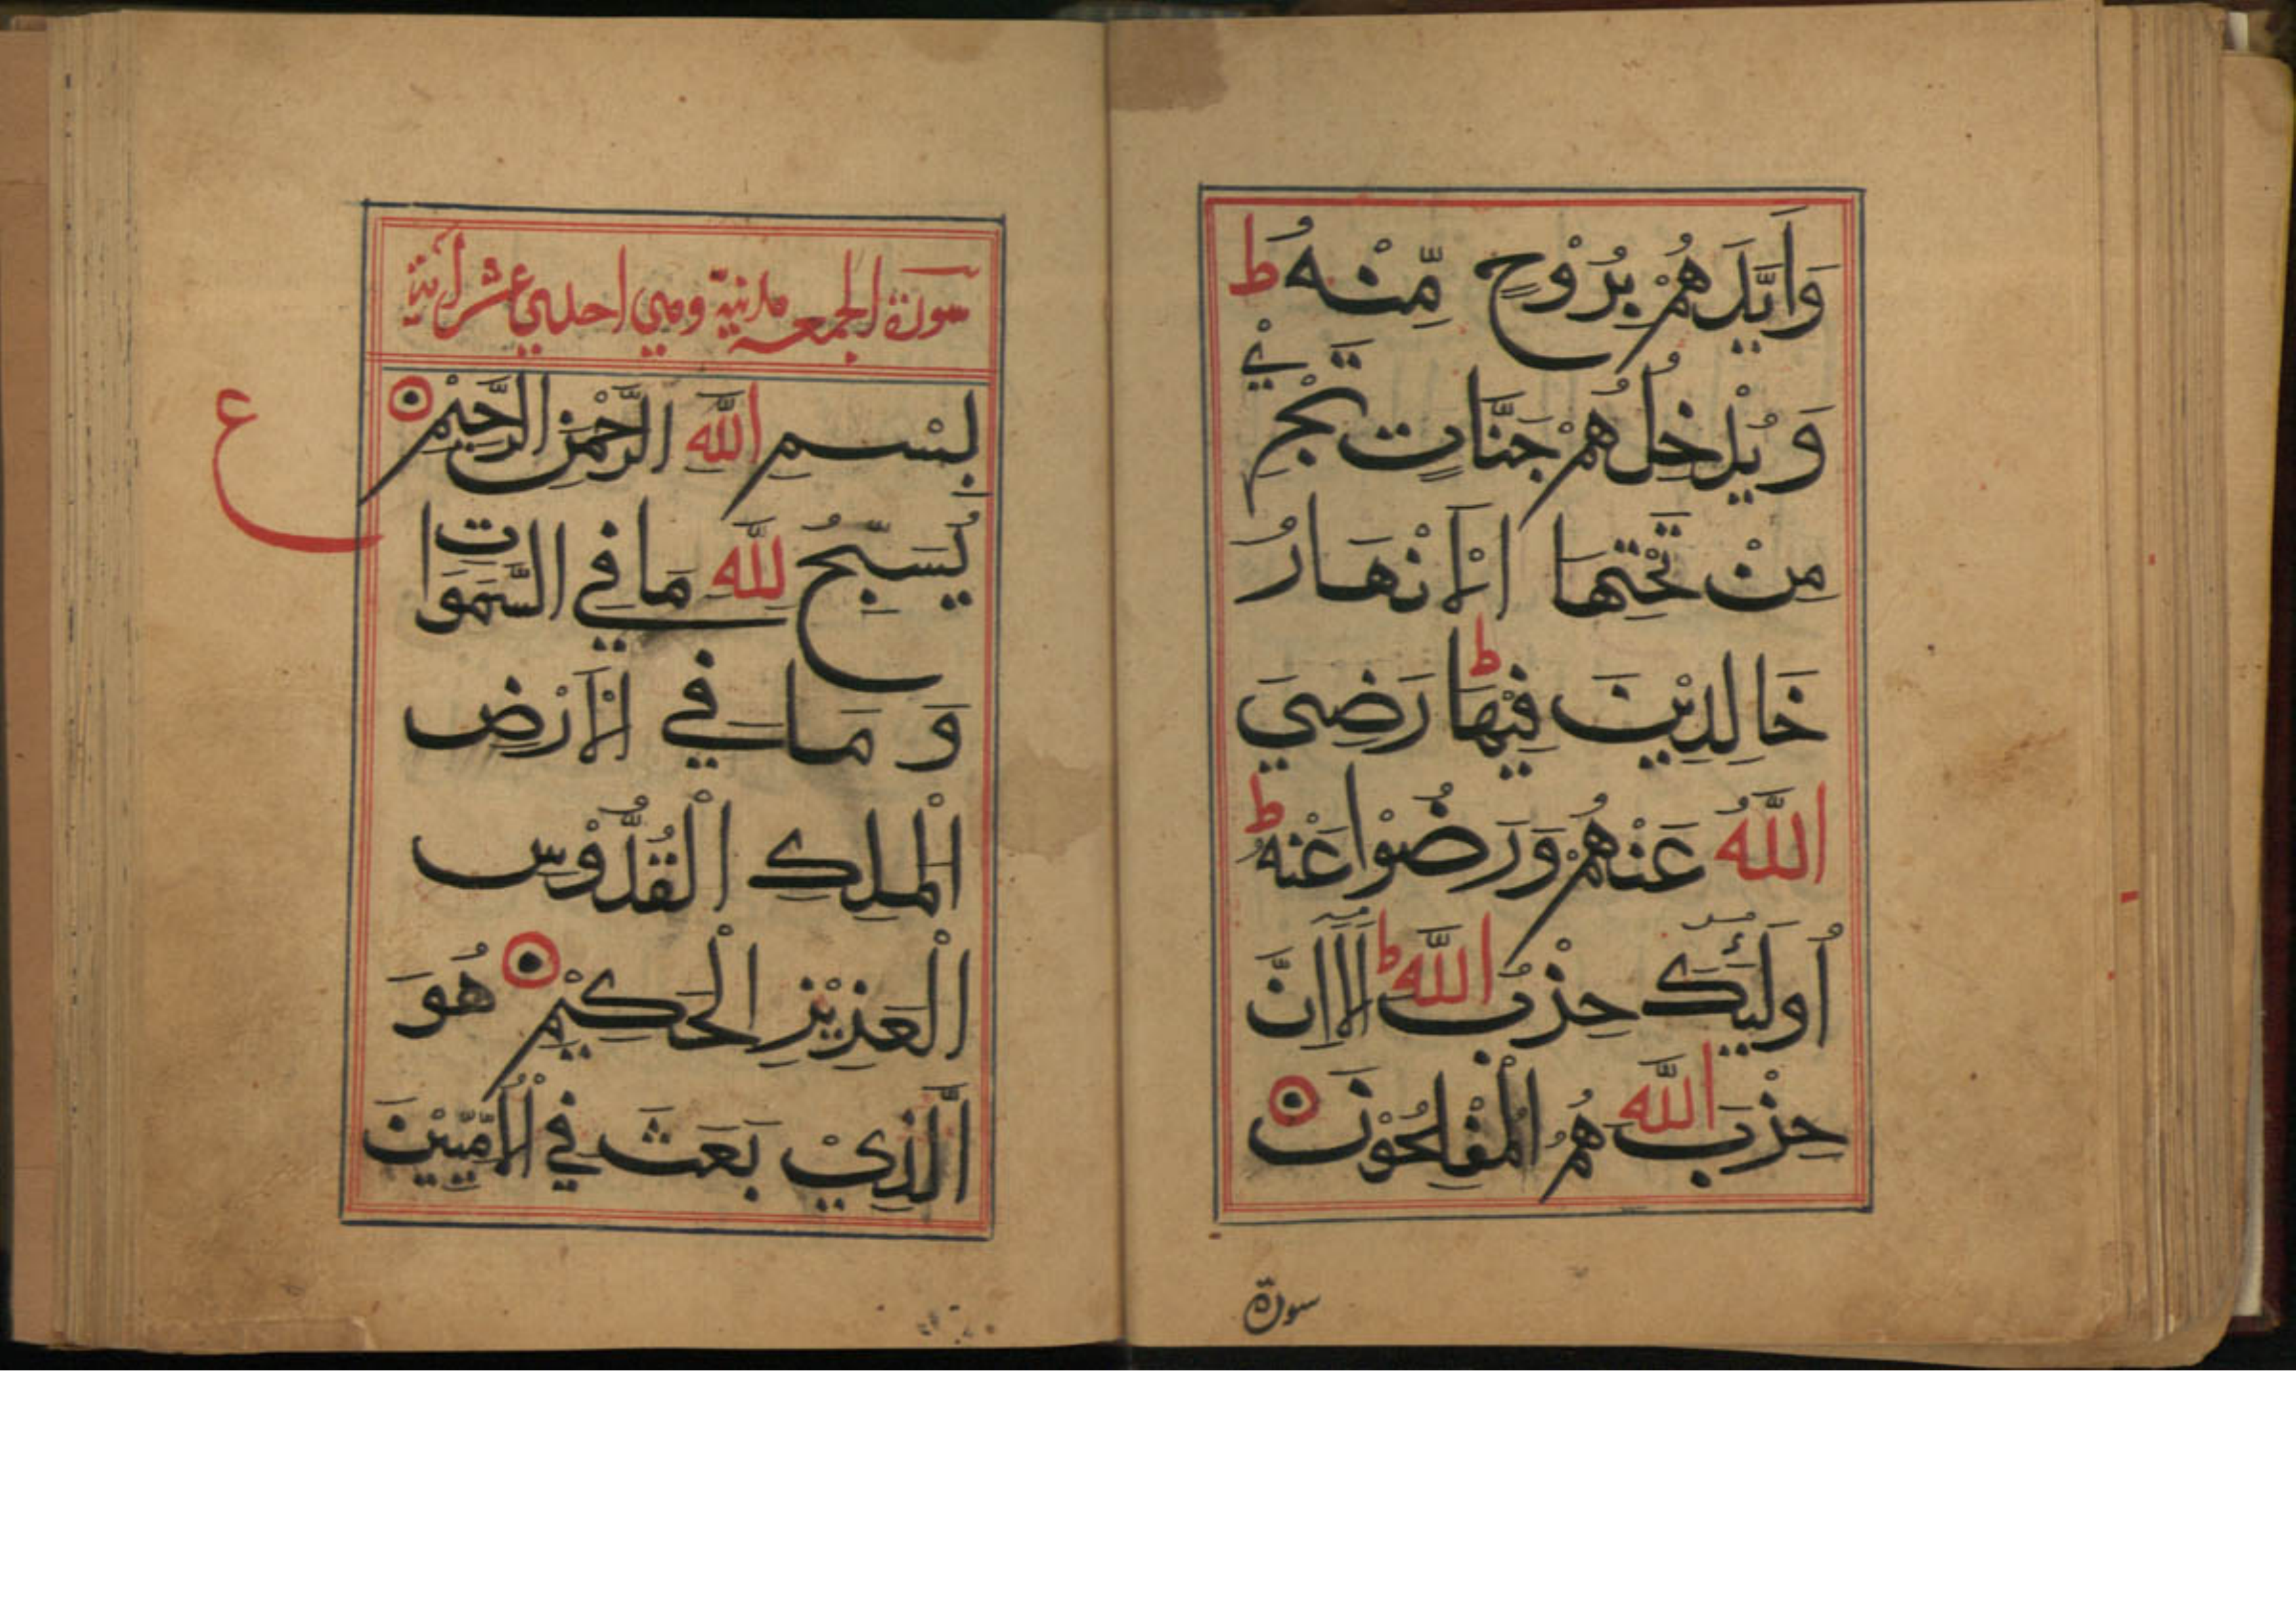 وَاَيَّدَهُمْ بِرُوْحٍ مِّنْهُ ط
وَيُدْخِلُهُمْ جَنَّاتٍ تَجْرِيْ
مِنْ تَحْتِهَا الْاَنْهَارُ
خَالِدِيْنَ فِيْهَا ط رَضِيَ
اللّٰهُ عَنْهُمْ وَرَضُوْا عَنْهُ ط
اُولٰٓئِكَ حِزْبُ اللّٰهِ ط اَلَآ اِنَّ
حِزْبَ اللّٰهِ هُمُ الْمُفْلِحُوْنَ
سورة
سورة الجمعه مدنية وهي احدي عشر اٰية
بِسْمِ اللّٰهِ الرَّحْمٰنِ الرَّحِيْمِ
ع
يُسَبِّحُ لِلّٰهِ مَا فِي السَّمَوَاتِ
وَمَا فِي الْاَرْضِ
الْمَلِكِ الْقُدُّوْسِ
الْعَزِيْزِ الْحَكِيْمِ هُوَ
الَّذِيْ بَعَثَ فِي الْاُمِّيّيْنَ